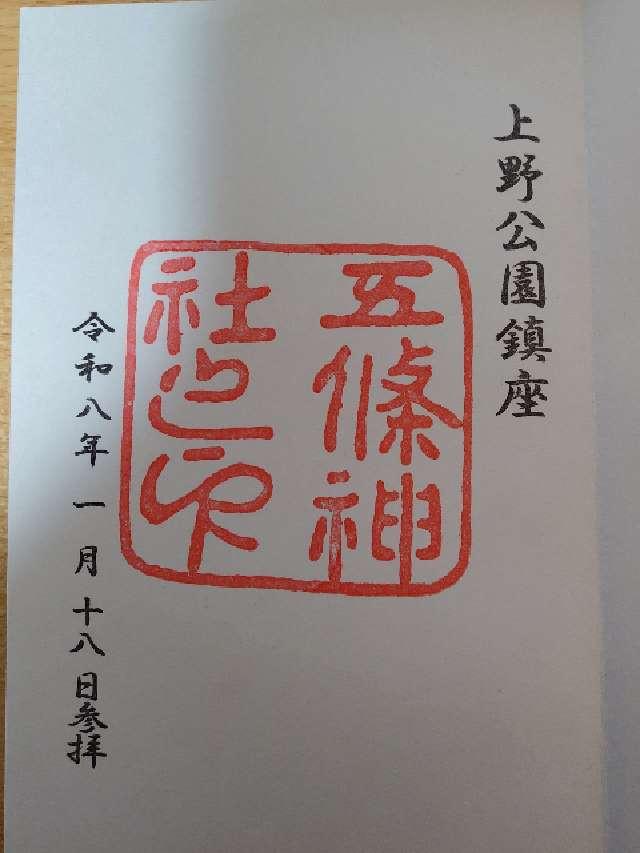 上野公園鎮座
五條神
社之印
令和八年一月十八日参拝